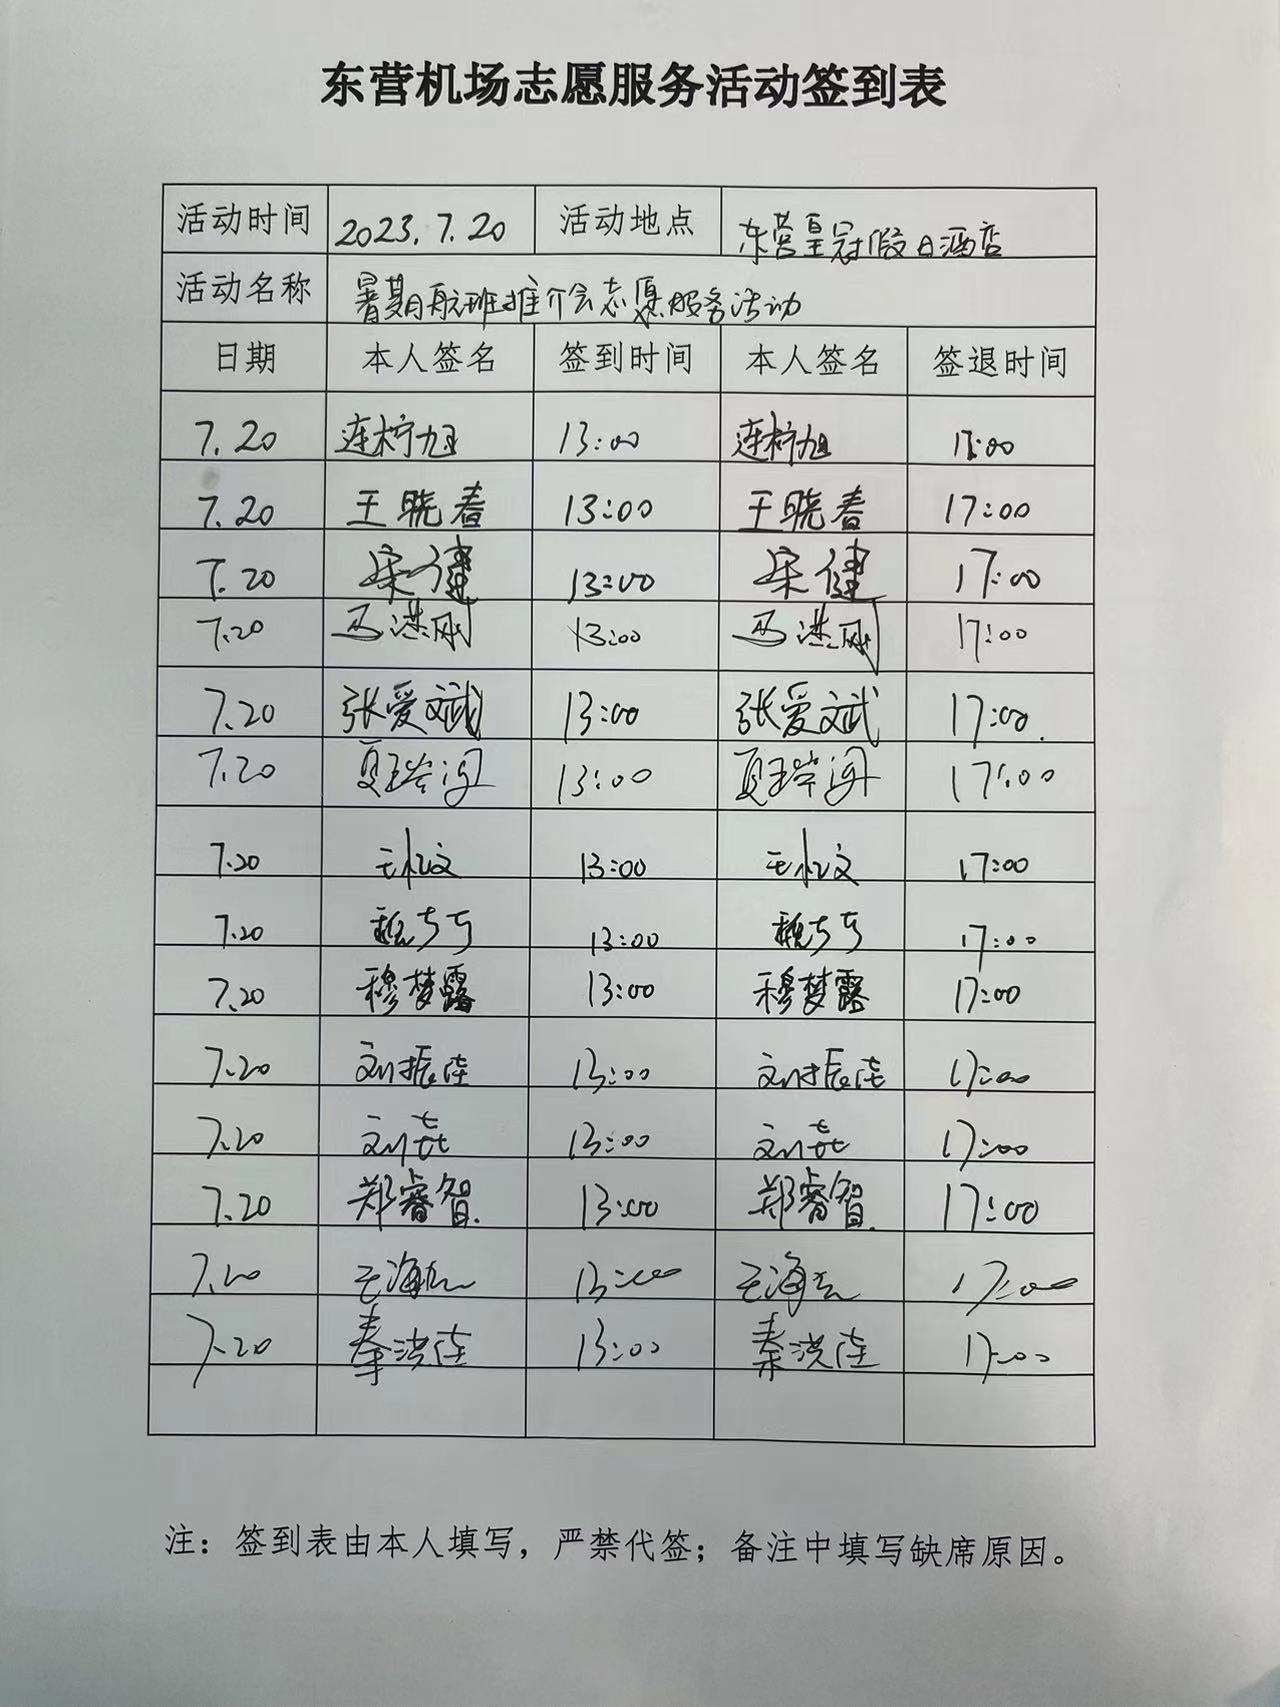 东营机场志愿服务活动签到表
活动时间 2023.7.20 活动地点 东营皇冠假日酒店
活动名称 暑期航班推介会志愿服务活动
日期 本人签名 签到时间 本人签名 签退时间
7.20 连柠旭 13:00 连柠旭 17:00
7.20 王晓春 13:00 王晓春 17:00
7.20 宋健 13:00 宋健 17:00
7.20 马洪刚 13:00 马洪刚 17:00
7.20 张爱斌 13:00 张爱斌 17:00
7.20 夏瑞 13:00 夏瑞 17:00
7.20 王 文 13:00 王 文 17:00
7.20 魏 13:00 魏 17:00
7.20 穆梦露 13:00 穆梦露 17:00
7.20 刘振 13:00 刘振 17:00
7.20 刘 13:00 刘 17:00
7.20 郑睿智 13:00 郑睿智 17:00
7.20 王海 13:00 王海 17:00
7.20 秦洪 13:00 秦洪 17:00
注：签到表由本人填写，严禁代签；备注中填写缺席原因。